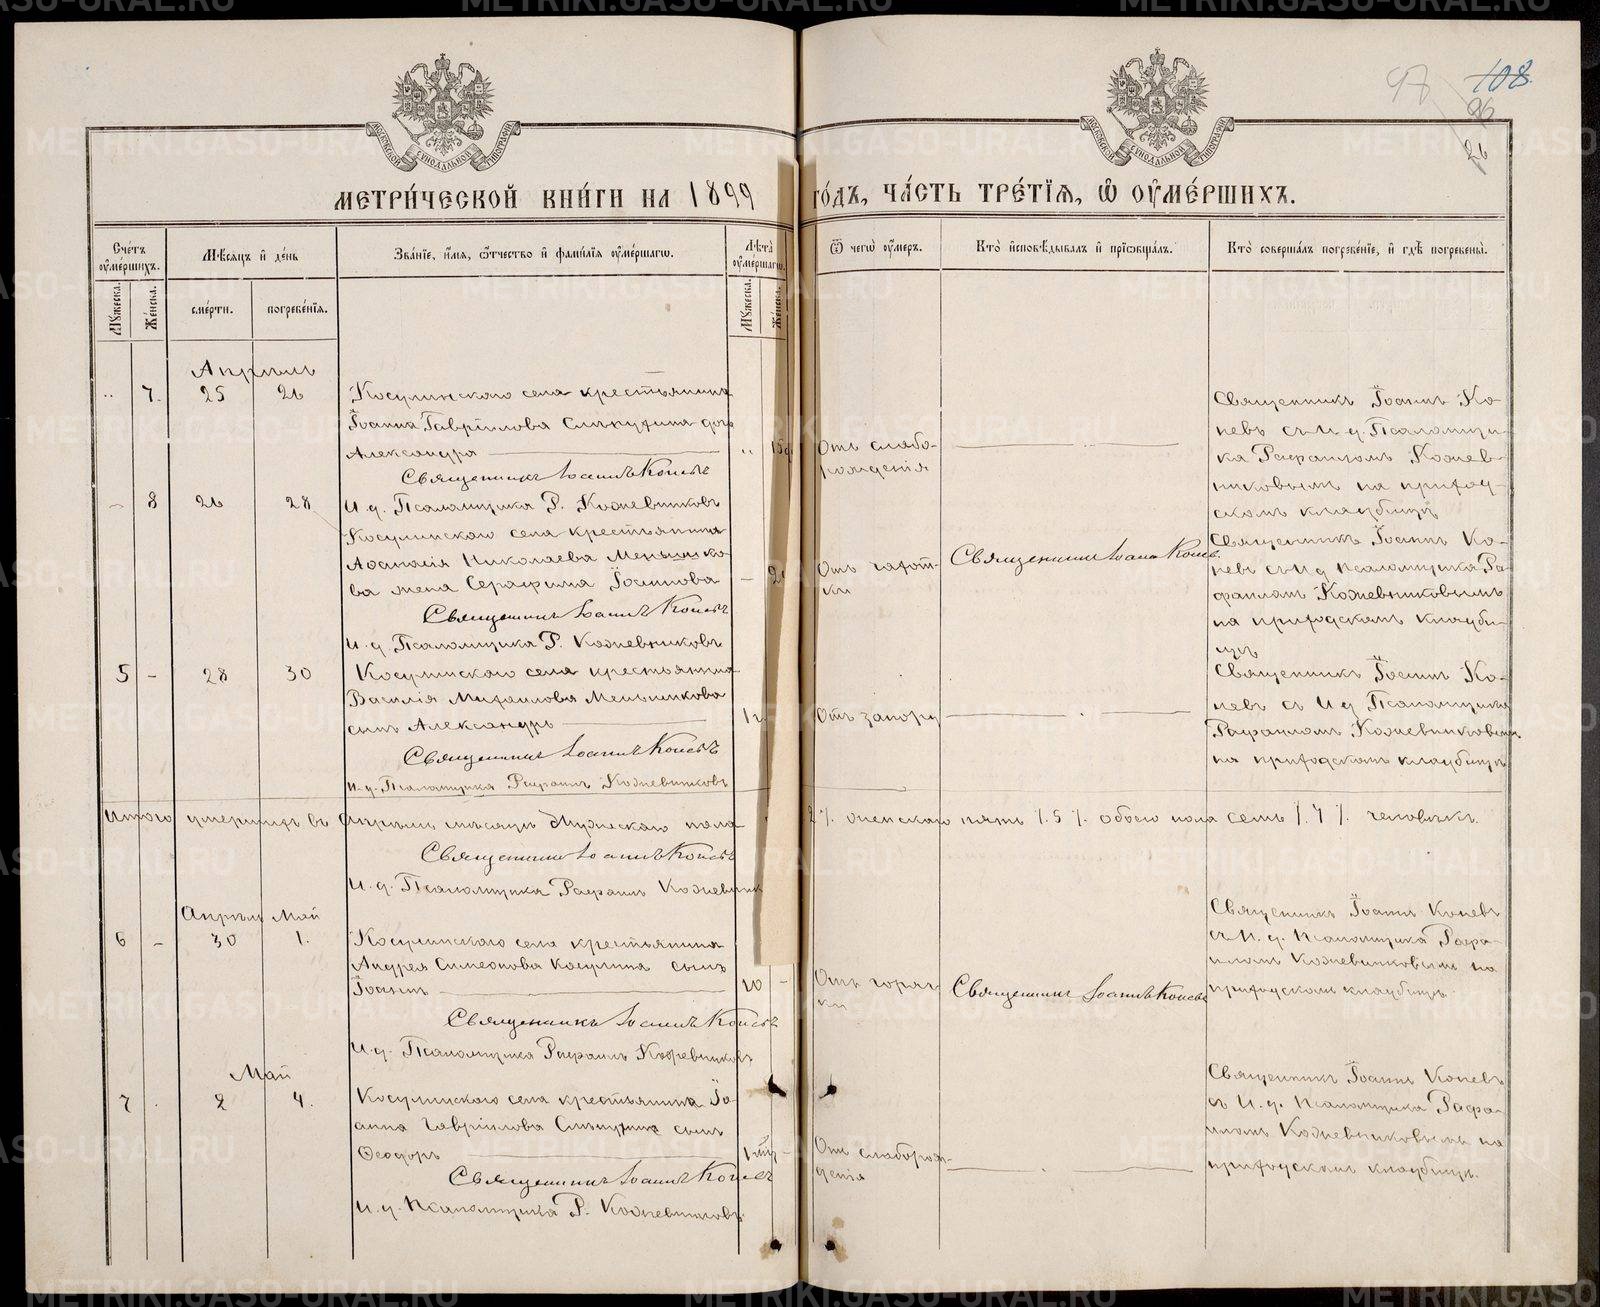 97 108
96
26
МОСКОВСКОЙ СѴНОДАЛЬНОЙ ТИПОГРАФІИ
МОСКОВСКОЙ СѴНОДАЛЬНОЙ ТИПОГРАФІИ
МЕТРИ́ЧЕСКОЙ КНИ́ГИ НА 1899 ГО́ДЪ, ЧА́СТЬ ТРЕ́ТІЯ, Ѽ ОУ҆МЕ́РШИХЪ.
Сче́тъ оу҆ме́ршихъ.
Мѣ́сяцъ и҆ де́нь
Зва́ніе, и҆́мя, ѻ҆́тчество и҆ фами́лія оу҆ме́ршагѡ.
Лѣ́та оу҆ме́ршагѡ.
Ѿ чегѡ̀ оу҆́меръ.
Кто̀ и҆сповѣ́дывалъ и҆ прїѡбща́лъ.
Кто̀ соверша́лъ погребе́ніе, и҆ гдѣ̀ погребены̀.
Мꙋ́жеска. Же́нска.
сме́рти. погребе́нія.
Мꙋ́жеска. Же́нска.
Апрѣль
7. 25 26 Косулинскаго села крестьянина
Іоанна Гавріилова дочь
Александра
Священникъ Іоаннъ Коневъ
Отъ слабо-
рожденія
Священникъ Іоаннъ Ко-
невъ съ И. д. Псаломщи-
ка Рафаиломъ Кожев-
никовымъ на приход-
скомъ кладбищѣ
8 26 28 И. д. Псаломщика Р. Кожевниковъ
Косулинскаго села крестьянина
Аѳанасія Николаева Меньшико-
ва жена Серафима Іоаннова
Священникъ Іоаннъ Коневъ
И. д. Псаломщика Р. Кожевниковъ
Отъ чахот-
ки
Священникъ Іоаннъ Коневъ
Священникъ Іоаннъ Ко-
невъ съ И. д. псаломщика Ра-
фаиломъ Кожевниковымъ
на приходскомъ кладби-
щѣ
5 - 28 30 Косулинскаго села крестьянина
Василія Михаилова Меньшикова
сынъ Александръ
1 г.
Священникъ Іоаннъ Коневъ
И. д. Псаломщика Рафаилъ Кожевниковъ
Отъ запору
Священникъ Іоаннъ Ко-
невъ съ И. д. Псаломщика
Рафаиломъ Кожевниковымъ
на приходскомъ кладбищѣ
Итого умершихъ въ Апрѣлѣ мѣсяцѣ мужескаго пола 2 /. женскаго пять /. 5 /. обоего пола семь /. 7 /. человѣкъ.
Священникъ Іоаннъ Коневъ
И. д. Псаломщика Рафаилъ Кожевник
Апрѣль Май
6 - 30 1. Косулинскаго села крестьянина
Андрея Симеонова Косулина сынъ
Іоаннъ
Священникъ Іоаннъ Коневъ
И. д. Псаломщика Рафаилъ Кожевниковъ
Отъ горяч-
ки
Священникъ Іоаннъ Коневъ
Священникъ Іоаннъ Коневъ
съ И. д. псаломщика Рафа-
иломъ Кожевниковымъ на
приходскомъ кладбищѣ.
Май
7 2 4. Косулинскаго села крестьянина Іо-
анна Гавріилова сынъ
Ѳеодоръ
Священникъ Іоаннъ Коневъ
И. д. Псаломщика Р. Кожевниковъ
Отъ слаборож-
денія
Священникъ Іоаннъ Коневъ
съ И. д. псаломщика Рафа-
иломъ Кожевниковымъ на
приходскомъ кладбищѣ.
METRIKI.GASO-URAL.RU